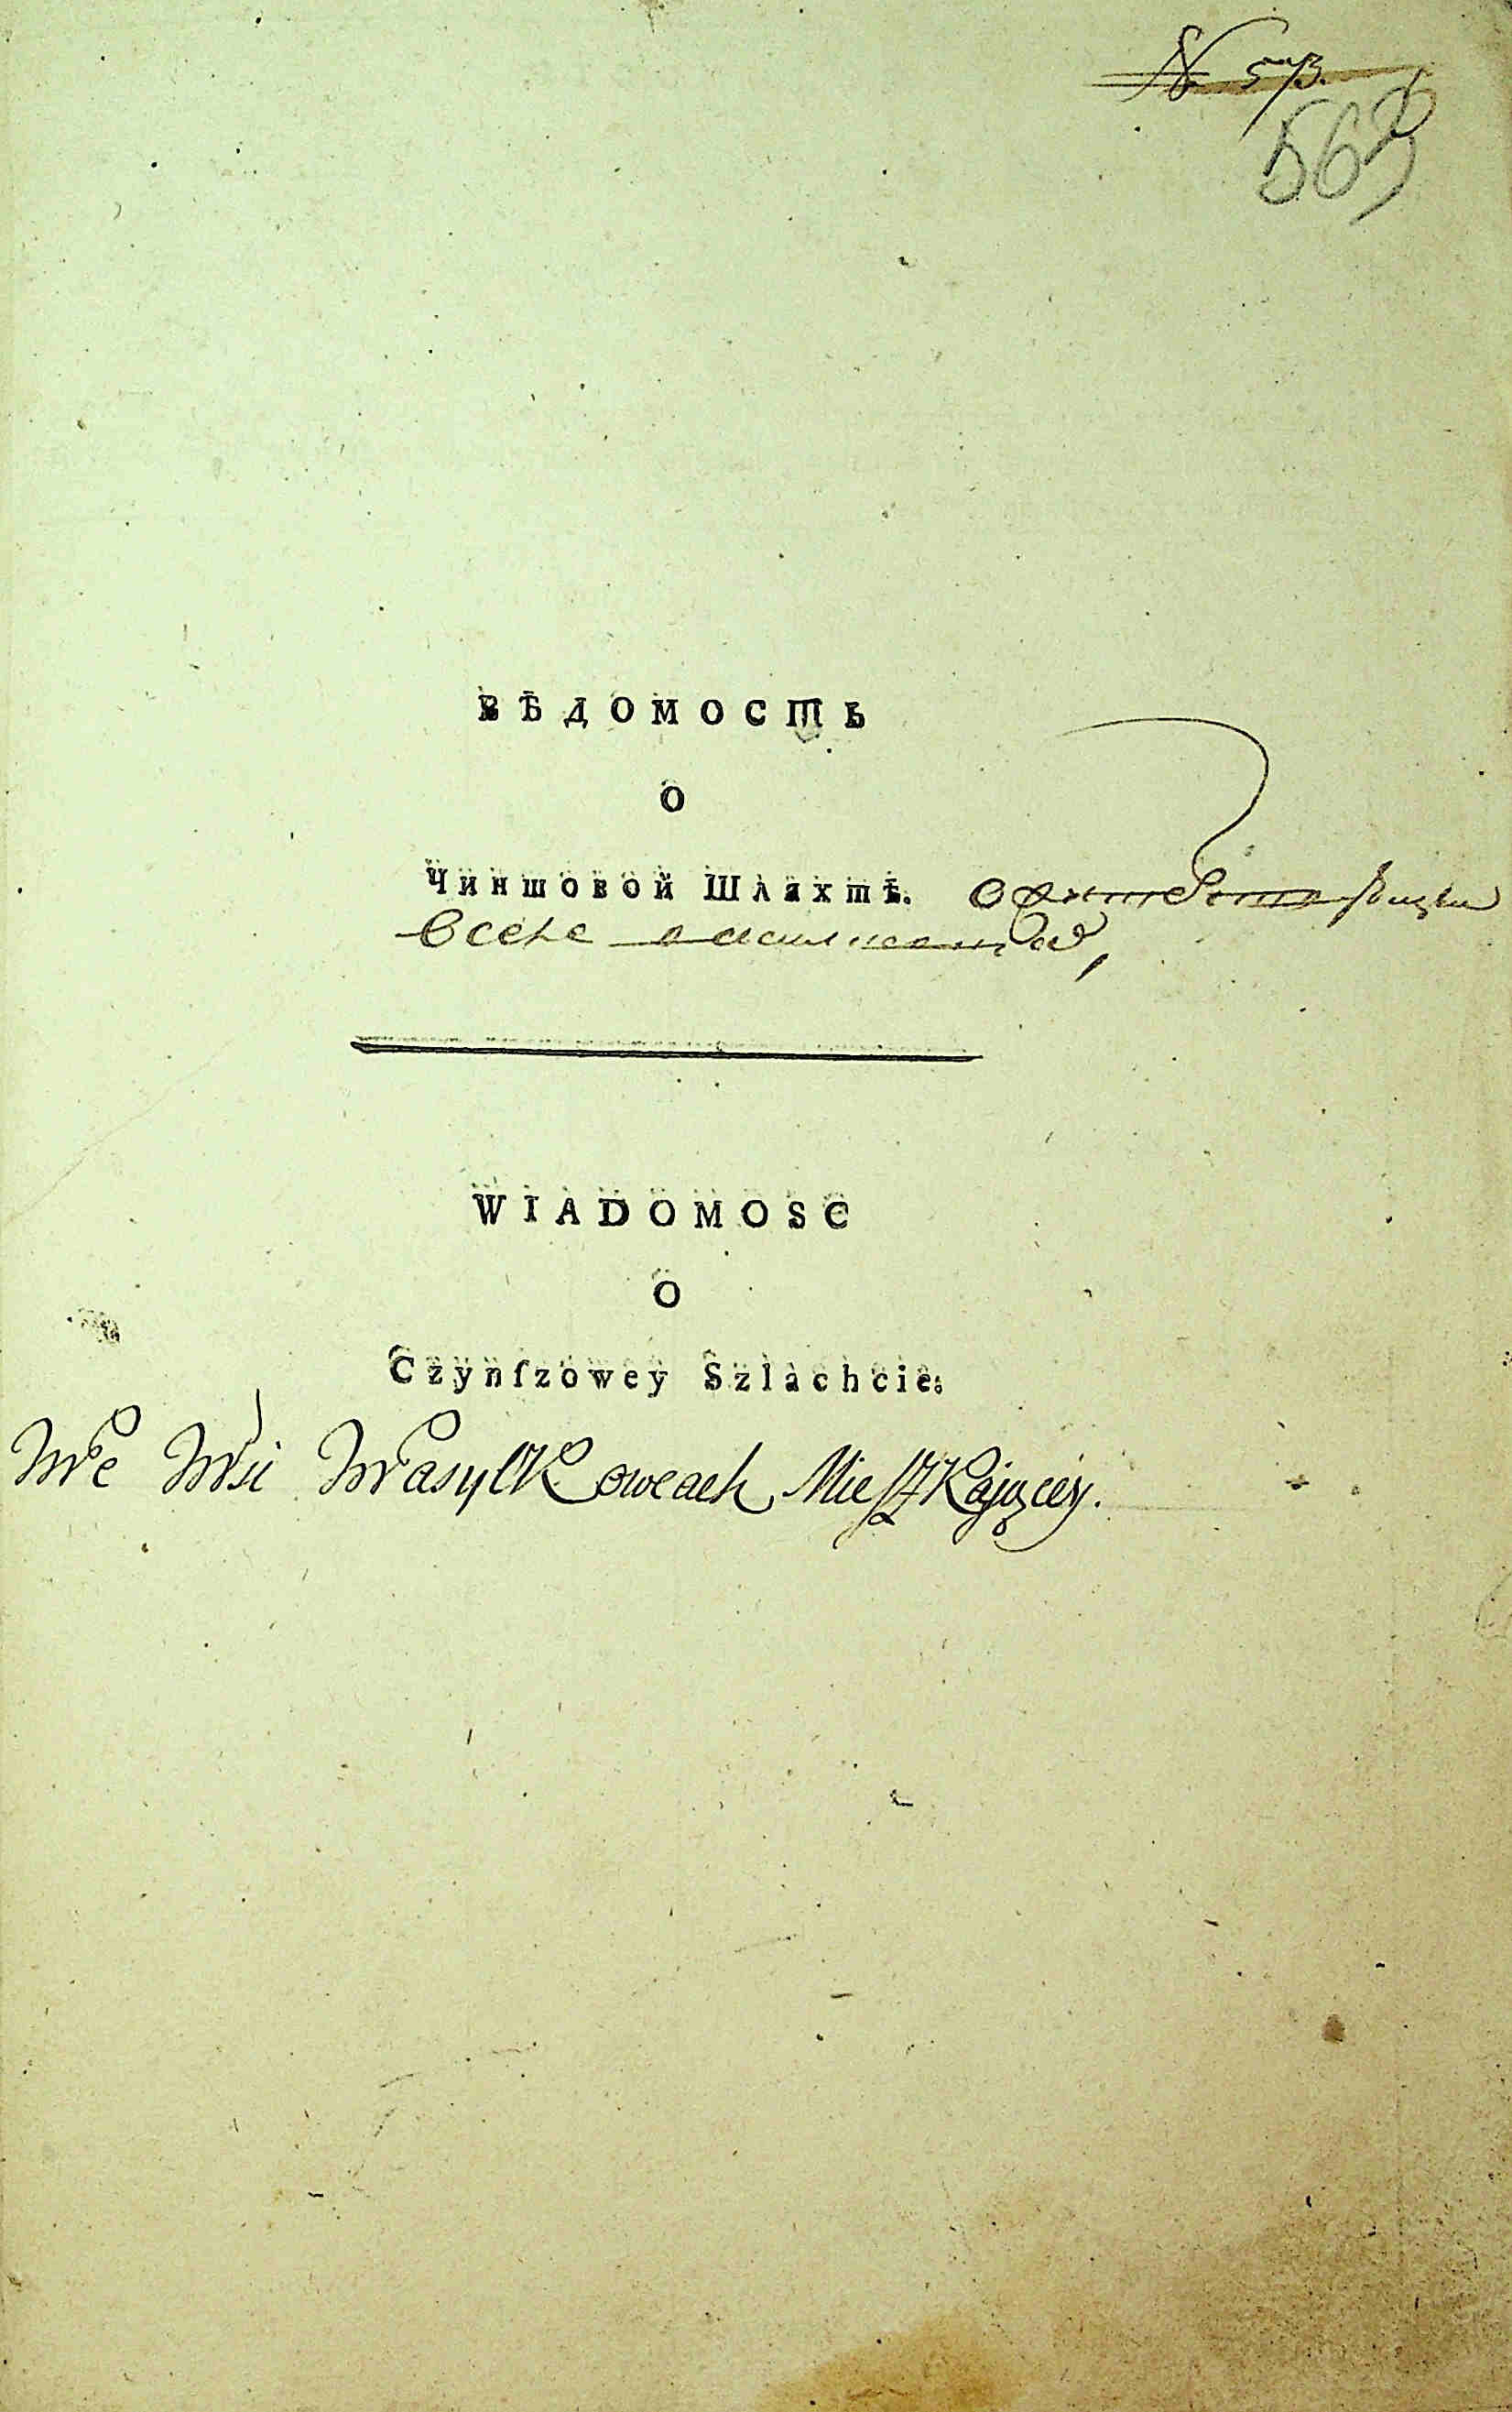 563
ВѢДОМОСТЬ
О
Чиншовой Шляхтѣ.
WIADOMOSC
O
Czynſzowey Szlachcie.
We Wsi Wasylkowcach Mieſzkającey.